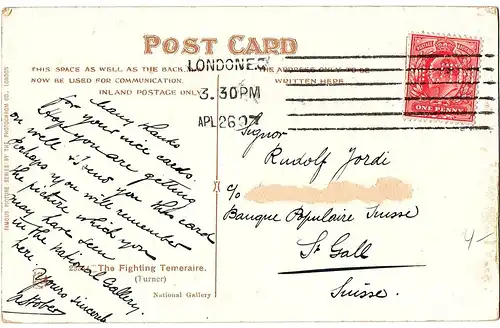 POST CARD
THIS SPACE AS WELL AS THE BACK MAY
NOW BE USED FOR COMMUNICATION.
INLAND POSTAGE ONLY
THE ADDRESS ONLY TO BE
WRITTEN HERE.
LONDON
3.30PM
APL 26 07
ONE PENNY
Many thanks
for your nice cards.
Hope you are getting
on well. I send you this card
perhaps you will remember
the picture which you
may have seen
in the National Gallery
here yours sincerely
Signor
Rudolf Jordi
c/o
Banque Populaire Suisse
St Gall
Suisse.
4-
The Fighting Temeraire.
(Turner)
National Gallery
FAMOUS PICTURE SERIES BY THE PHOTOCHROM CO., LONDON